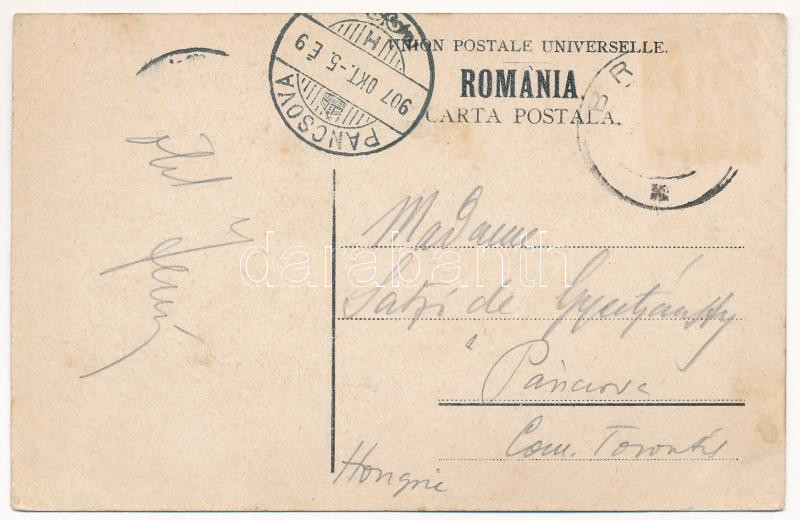 UNION POSTALE UNIVERSELLE.
ROMÂNIA.
CARTA POSTALA.
PANCSOVA
907 OKT.-5. É 9
BR
ölel
Jenő
Madame
de Gyertyánffy
à
Páncsova
Com. Torontál
Hongrie
darabanth